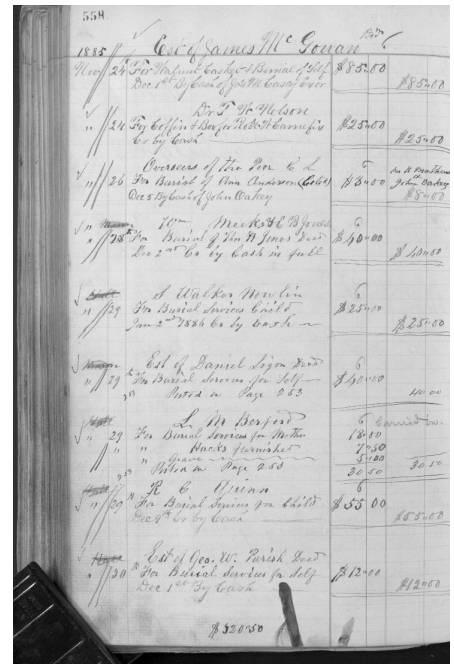 558
1885 Est of James Mc Gowan
Nov 24 For Walnut Casket & Burial of Self $85.00
Dec 1st By Cash of $85.00
Dr T W Nelson
" 24 For Coffin & Box for $25.00
Cr by Cash $25.00
Overseers of the Poor C L 6
" 26 For Burial of Ann Anderson $8.00 John Oakey
Dec 5 By Cash of John Oakey $8.00
Wm Meeks & C B Jones 6
" 28th For Burial of Thos H Jones Decd $40.00
Dec 2nd Cr by Cash in full $40.00
S Walker Nowlin 6
" 29 For Burial Services Child $25.00
Jan 2nd 1886 Cr by Cash $25.00
Est of Daniel Decd 6
" 29 For Burial Services for Self $40.00
253 Posted on Page 253 40.00
L M Berford 6 Carried
" 29 For Burial Services for Mother 18.00
" " Hacks furnished 7.50
" Grave 5.00
253 Posted on Page 253 30 50 30 50
R C Quinn 6
" 29 For Burial Services for Child $55.00
Dec 9th Cr by Cash $55.00
Est of Geo. W. Parish Decd
" 30 For Burial Services for Self $12.00
Dec 1st By Cash $12.00
$320.50